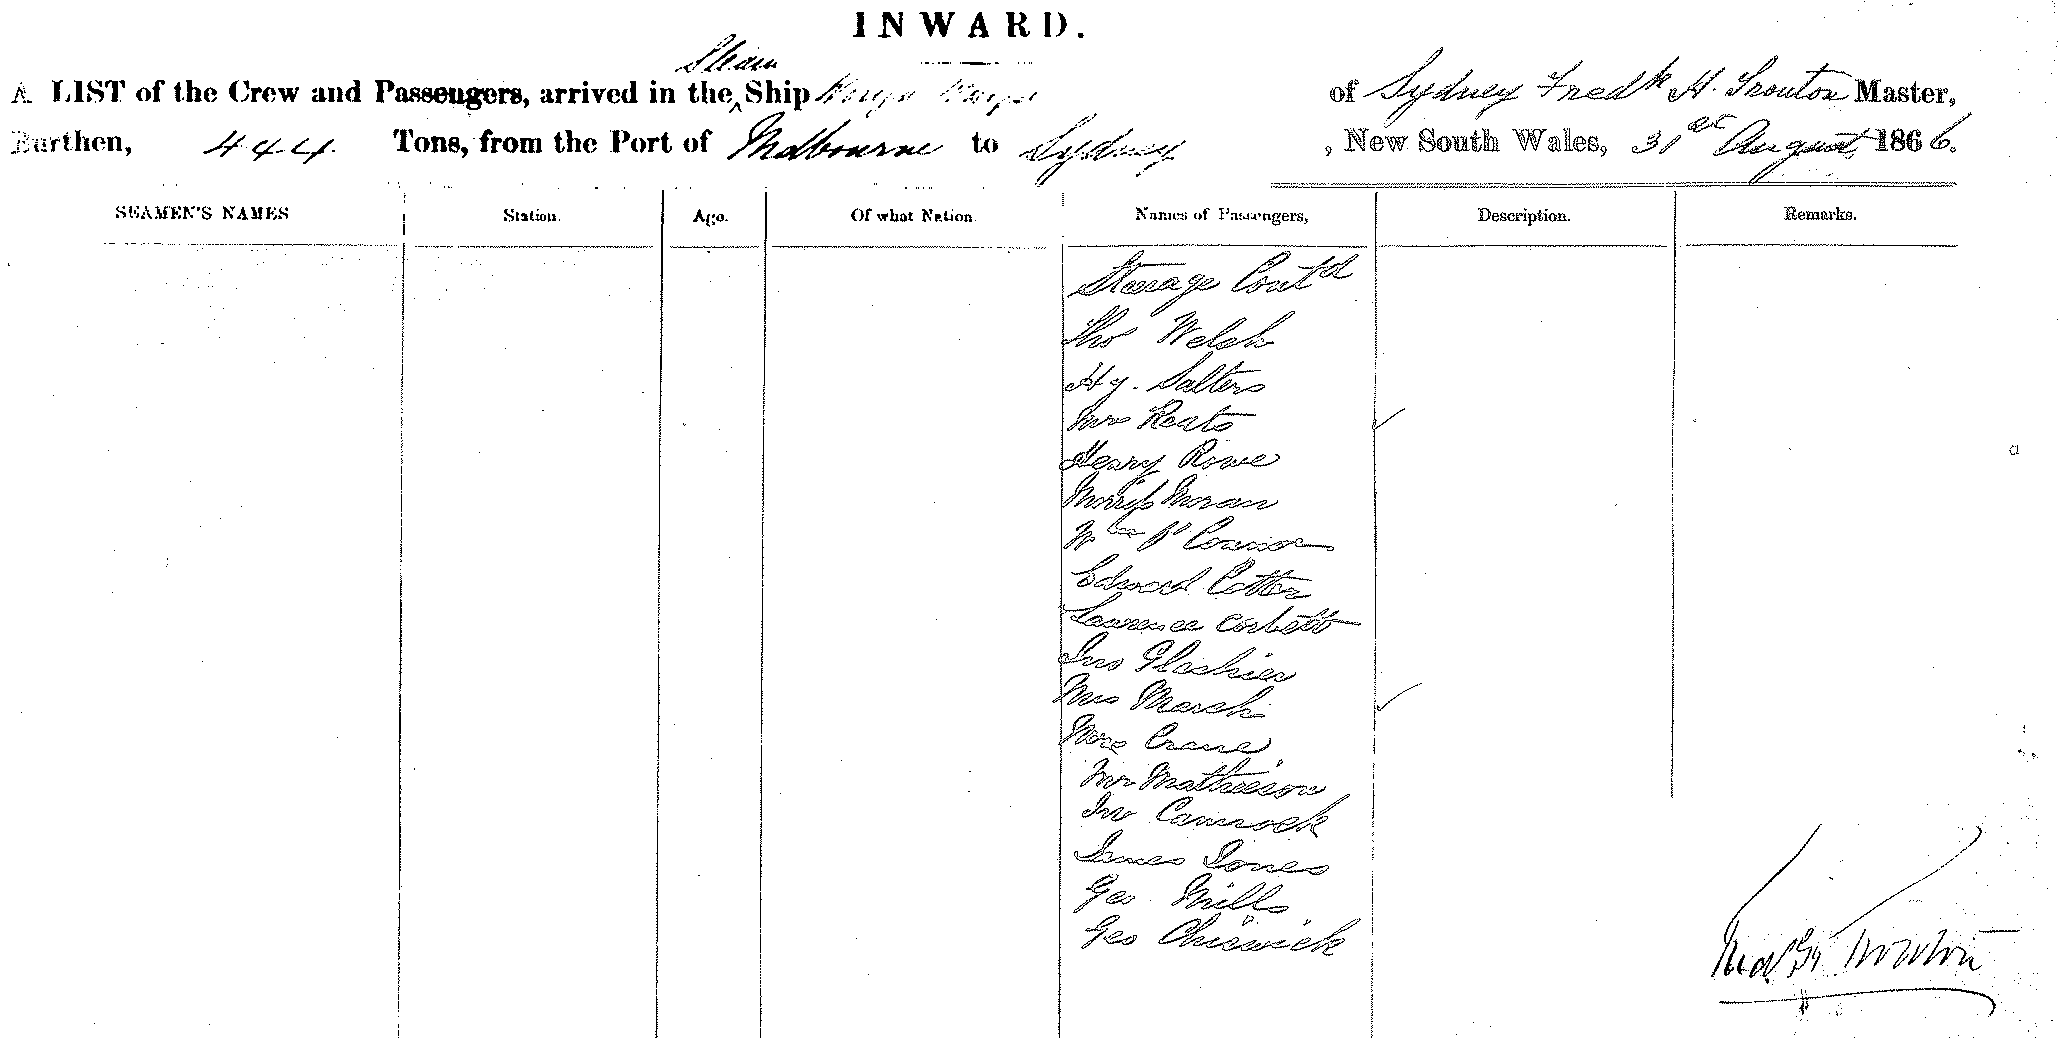 INWARD.
Steam
A LIST of the Crew and Passengers, arrived in the ^ Ship of Sydney Fredk H. Trouton Master,
Burthen, 444 Tons, from the Port of Melbourne to Sydney, New South Wales, 31st August 1866.
SEAMEN'S NAMES Station. Age. Of what Nation. Names of Passengers, Description. Remarks.
Steerage Contd
Tho Welsh
Hy. Salters
Mrs Keats
Henry Rowe
Morris Moran
Wm O'Connor
Edward Cotter
Lawrence Corbett
Jno
Mrs Marsh
Mrs Crane
Mr Mathieson
Cammock
James Jones
Geo Mills
Geo Chiswick
Fred H Trouton